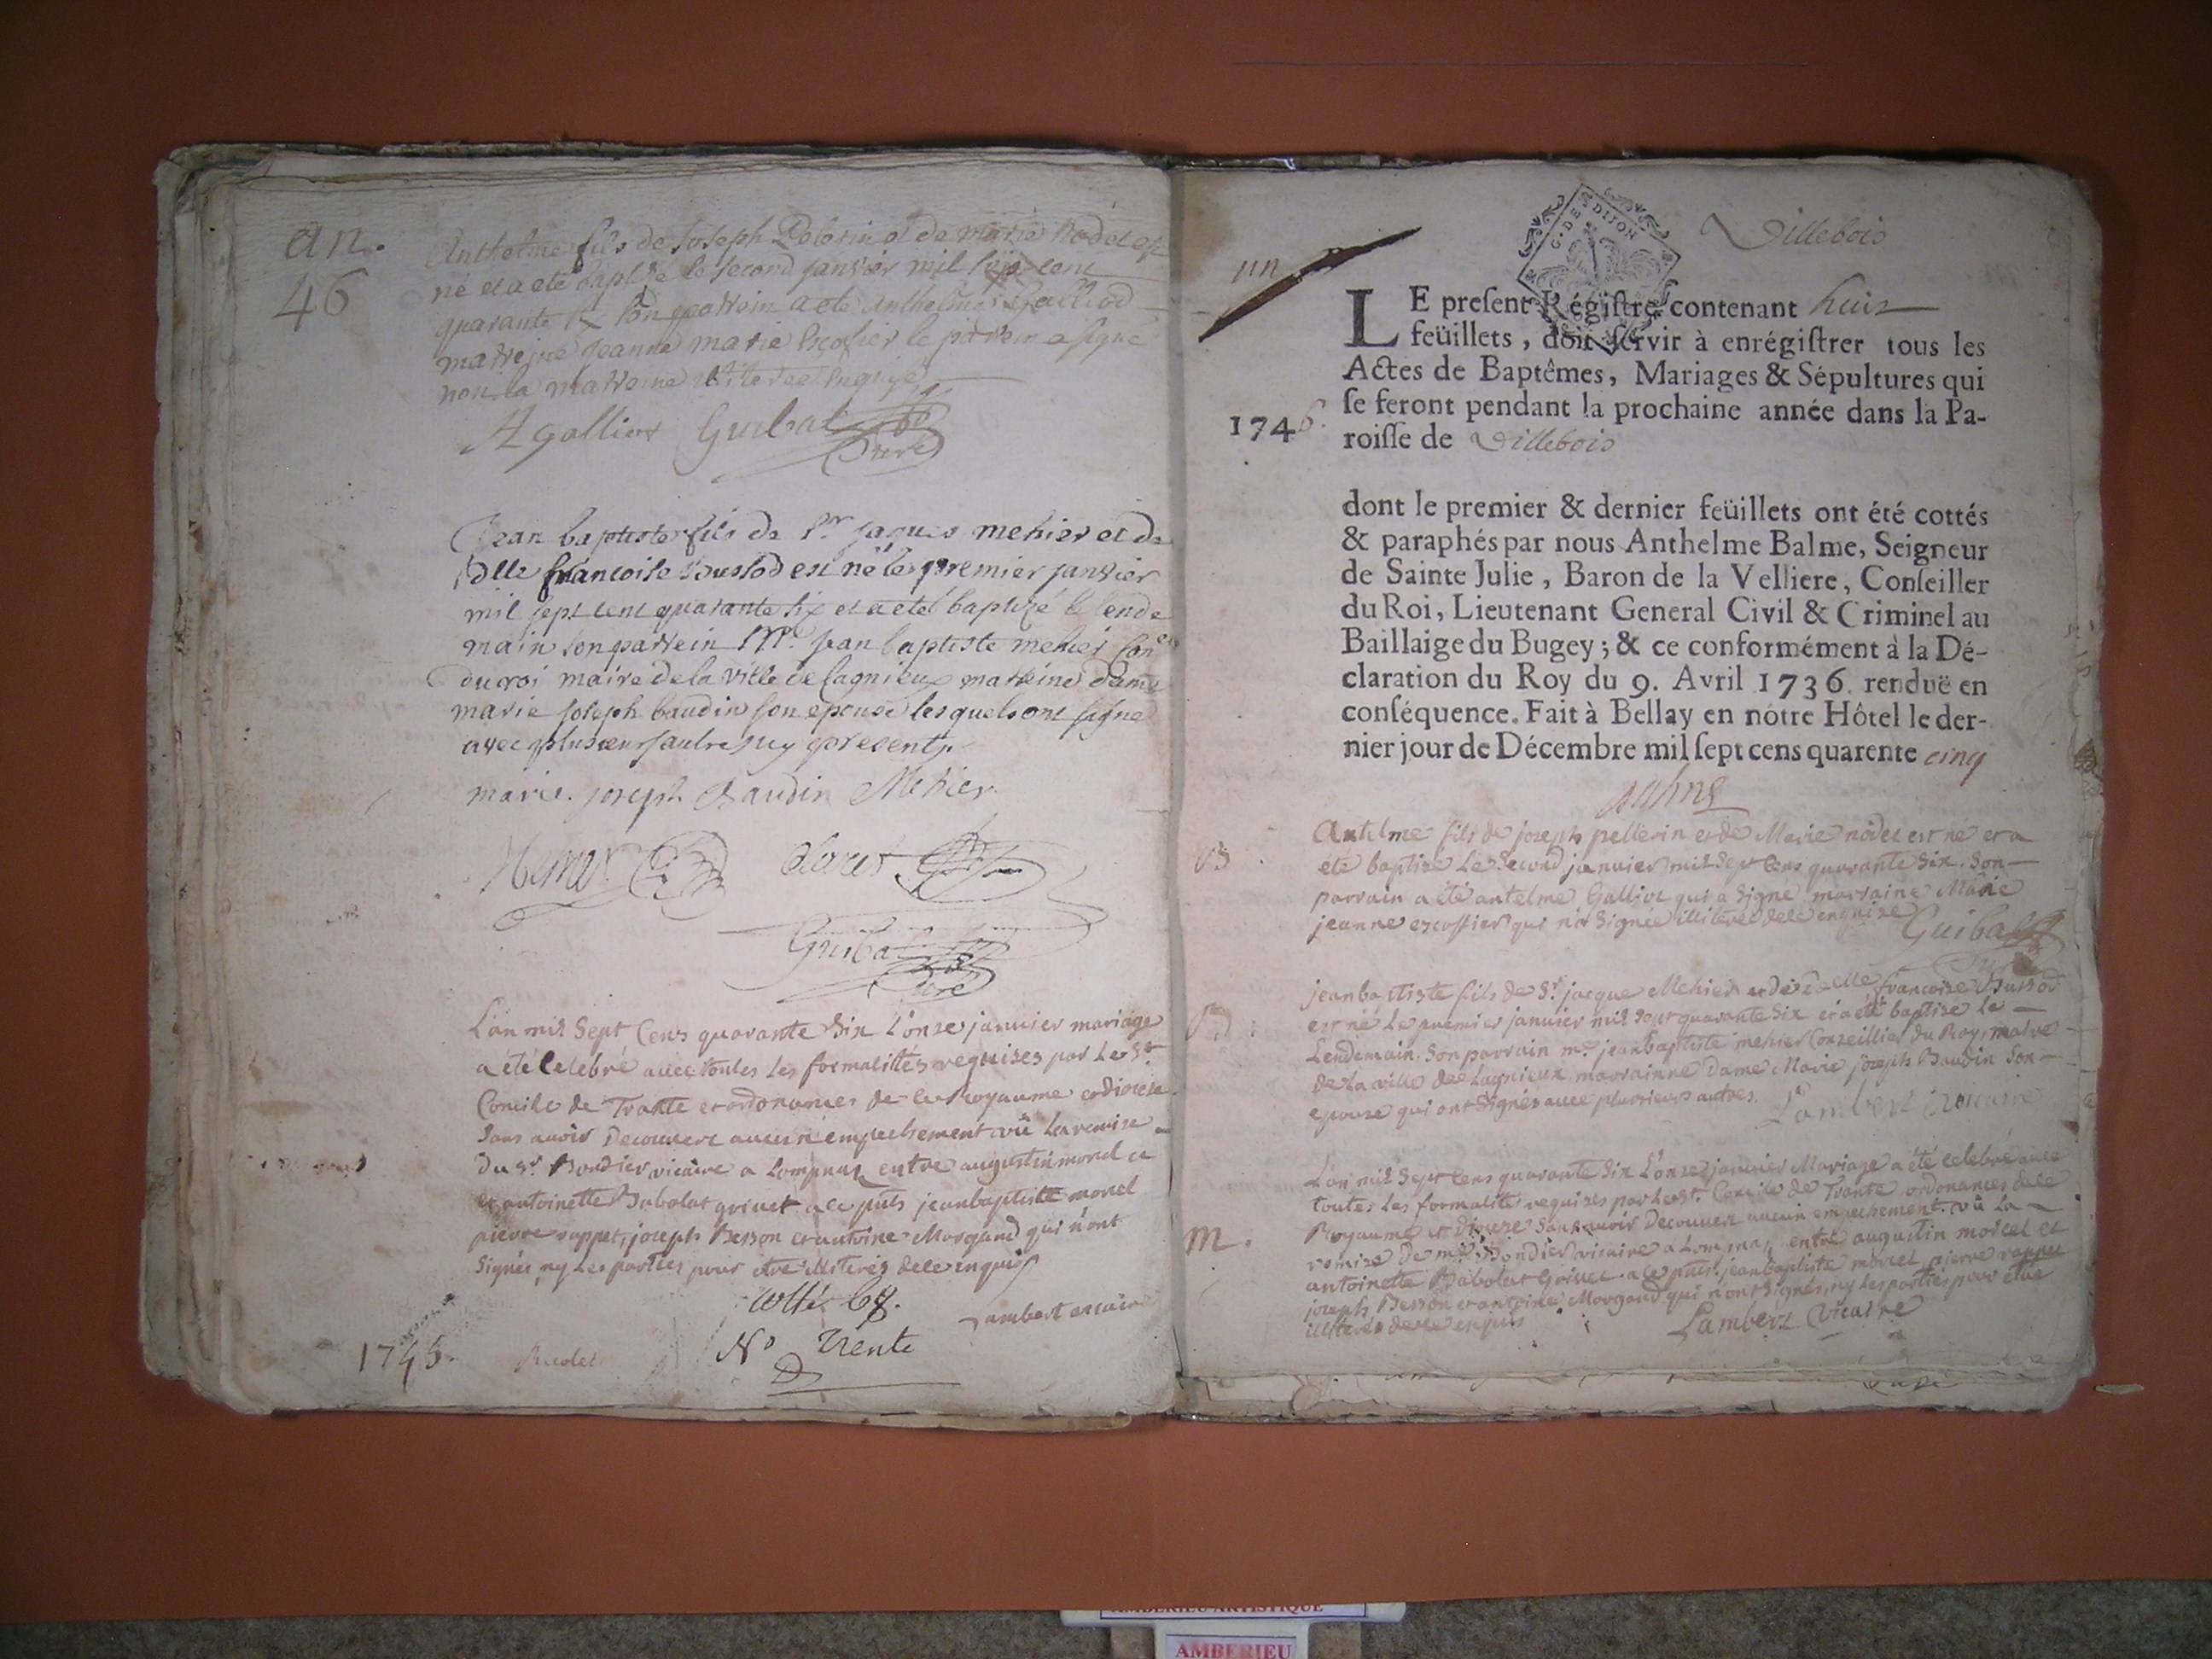 an.
46
Anthelme fils de Joseph Pelerin et de marie Nodet est
né et a eté baptisé le second janvier mil sept cent
quarante six son parrein a eté Anthelme Galliod
marreine Jeanne marie Escofier le parrein a signé
non la marreine illiteree enquise
A galliot Guibal
Curé
Jean baptiste fils de Sr. jaques mehier et de
dlle francoise Bussod est né le premier janvier
mil sept cent quarante six et a eté baptizé le lende
main son parrein Mr. jean baptiste mehier Conser
du roi maire de la ville de lagnieux marreine dame
marie joseph baudin son epouse lesquels ont signé
avec plusieurs autres icy presents.
marie. joseph Baudin Mehier
Guibal
Curé
L'an mil Sept Cens quarante Six L'onze januier mariage
a été Celebré auec toutes Les formalittés requises par Le St.
Concile de Trante et ordonances de ce Royaume et dioceze
Sans auoir Decouuert aucun empechement vû La remise
Du Sr. Bondier vicaire a Lompnaz entre augustin morel et
et antoinette Babolat griuet a ce puls jeanbaptiste morel
pierre rappet, joseph Besson et antoine Morgand qui n'ont
Signés, ny Les parties pour etre illiterés de ce enquis
Cottés 68. Lambert vicaire
No Trente
1745.
un
G. DE DIJON
Villebois
LE present Régistre contenant huit
feüillets, doit servir à enrégistrer tous les
Actes de Baptêmes, Mariages & Sépultures qui
se feront pendant la prochaine année dans la Pa-
1746. roisse de Villebois
dont le premier & dernier feüillets ont été cottés
& paraphés par nous Anthelme Balme, Seigneur
de Sainte Julie, Baron de la Velliere, Conseiller
du Roi, Lieutenant General Civil & Criminel au
Baillaige du Bugey; & ce conformément à la Dé-
claration du Roy du 9. Avril 1736. renduë en
conséquence. Fait à Bellay en nôtre Hôtel le der-
nier jour de Décembre mil sept cens quarente cinq
Balme
B
Antelme fils de joseph pellerin et de Marie nodet est né et a
ete baptisé Le Second januier mil Sept Cens quarante Six. Son
parrain a été antelme Galliot qui a Signé marraine Marie
jeanne escoffier qui n'a Signée illiterée de ce enquise
Guibal
B
jeanbaptiste fils de Sr. jacque Mehier et de delle francoise Bussod
est né Le premier januier mil Sept quarante Six et a été baptisé Le
Lendemain. Son parrain mr. jeanbaptiste mehier Conseillier du Roy, maire
de La ville de Lagnieux marrainne Dame Marie joseph Baudin Son
epouse qui ont Signés auec plusrieurs autres. Lambert Vicaire
L'an mil Sept Cens quarante Six L'onze januier Mariage a été celebré auec
toutes Les formalités requises par Le St. Concile de Trante ordonances de ce
Royaume et Dioceze Sans auoir Decouuert aucun empechement. vû La
M.
remise De mre. Bondier vicaire a Lompnaz entre augustin morel et
antoinette Babolat Griuet. a ce puls. jeanbaptiste morel pierre rappet
joseph Besson et antoine Morgand qui n'ont Signés, ny Les parties pour etre
illiterés de ce enquis Lambert Vicaire
AMBERIEU ARTISTIQUE
AMBERIEU